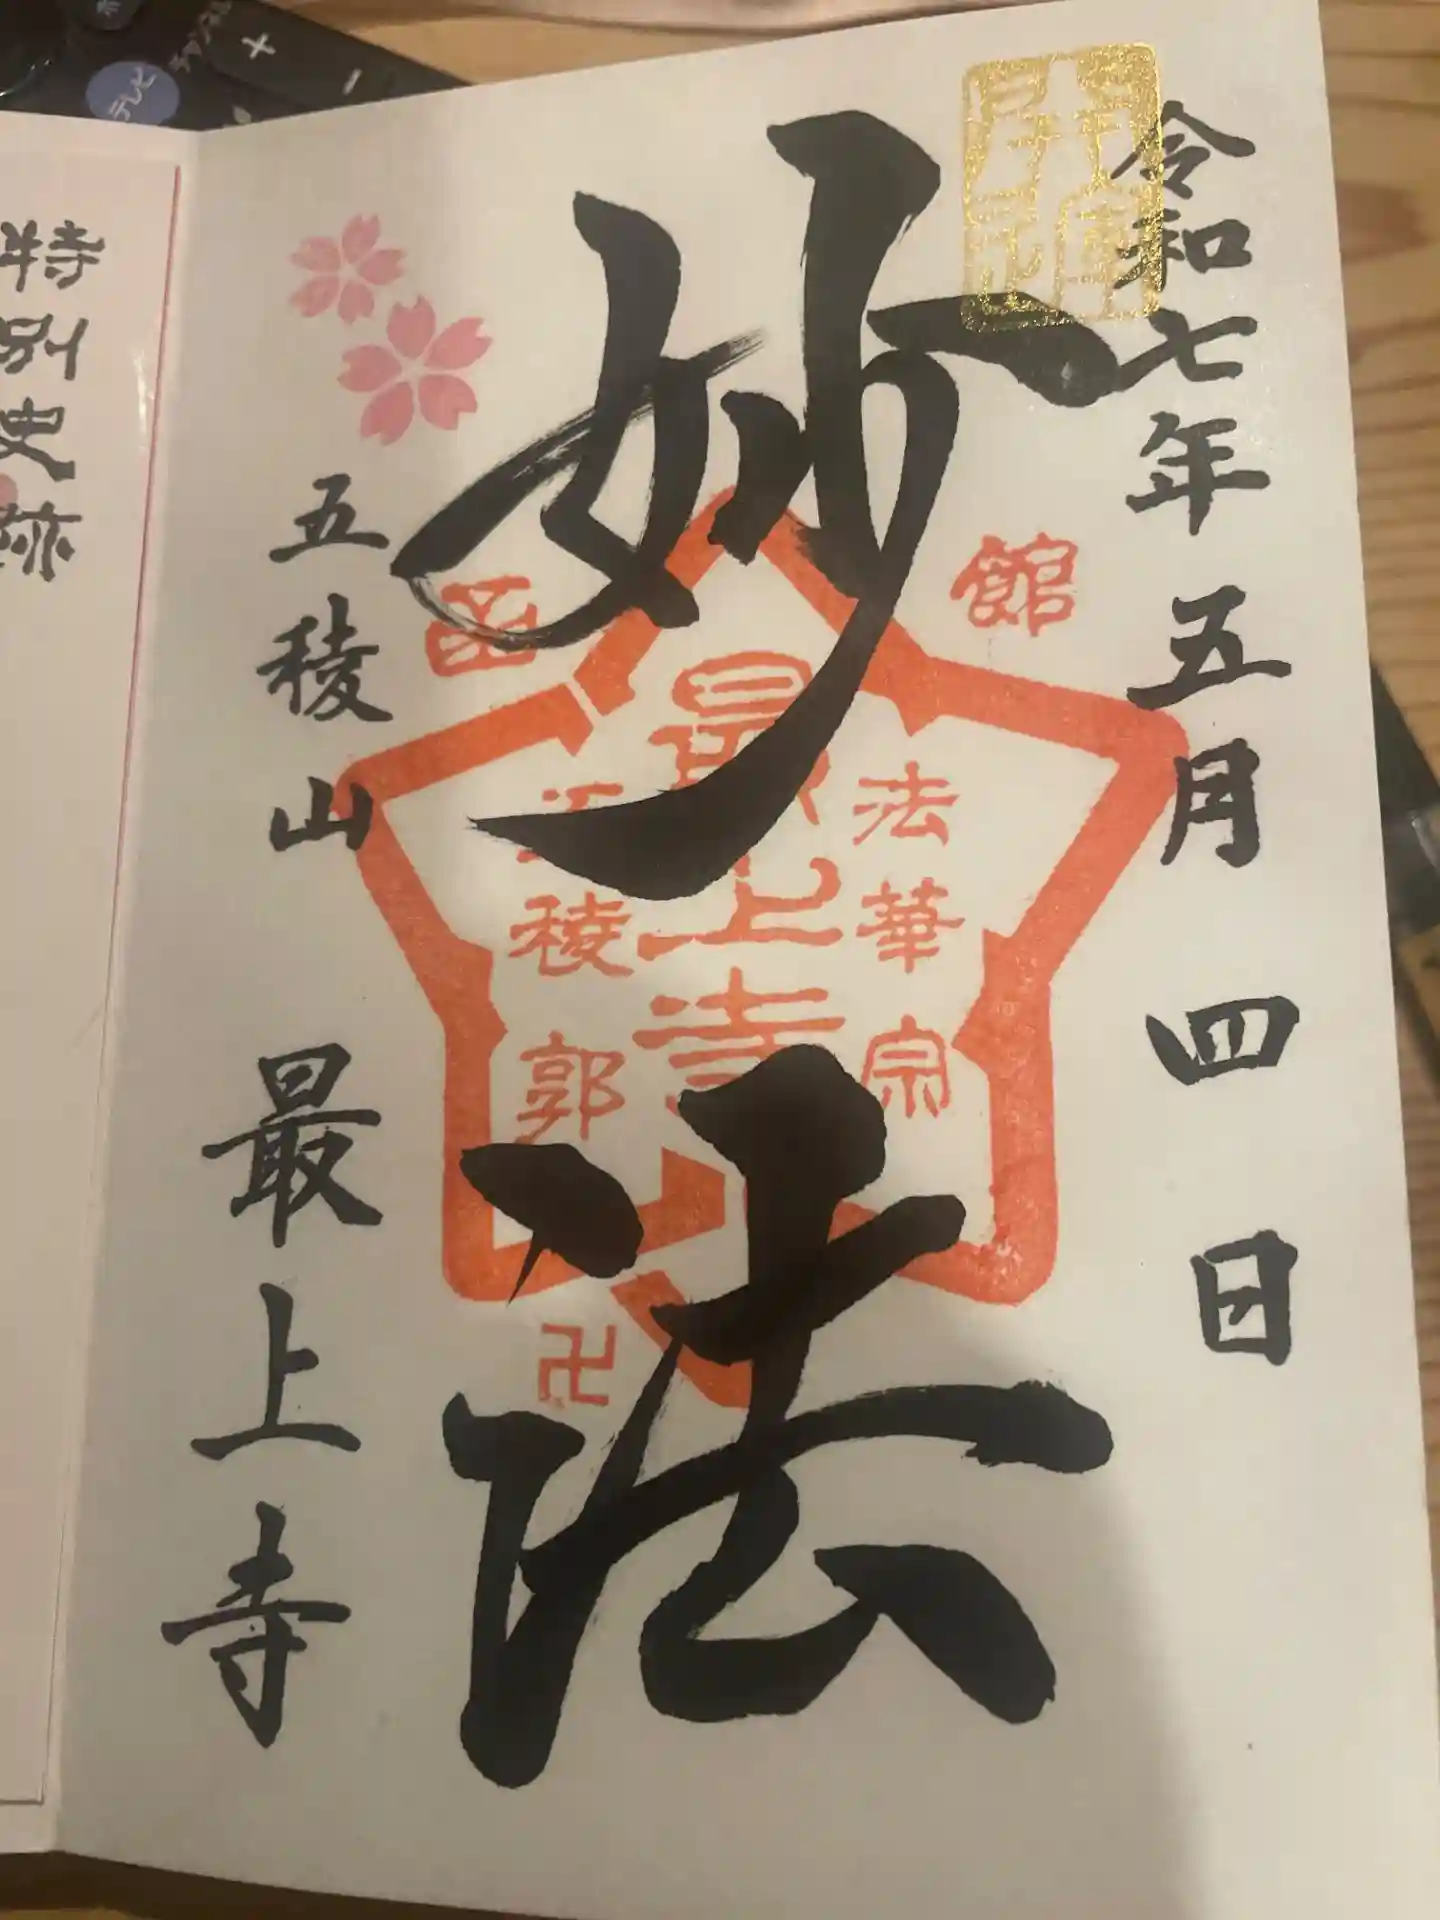 令和七年五月四日
妙法
五稜山 最上寺
函館
法華宗
最上寺
五稜郭
卍
特別史跡
テレビ
+
-